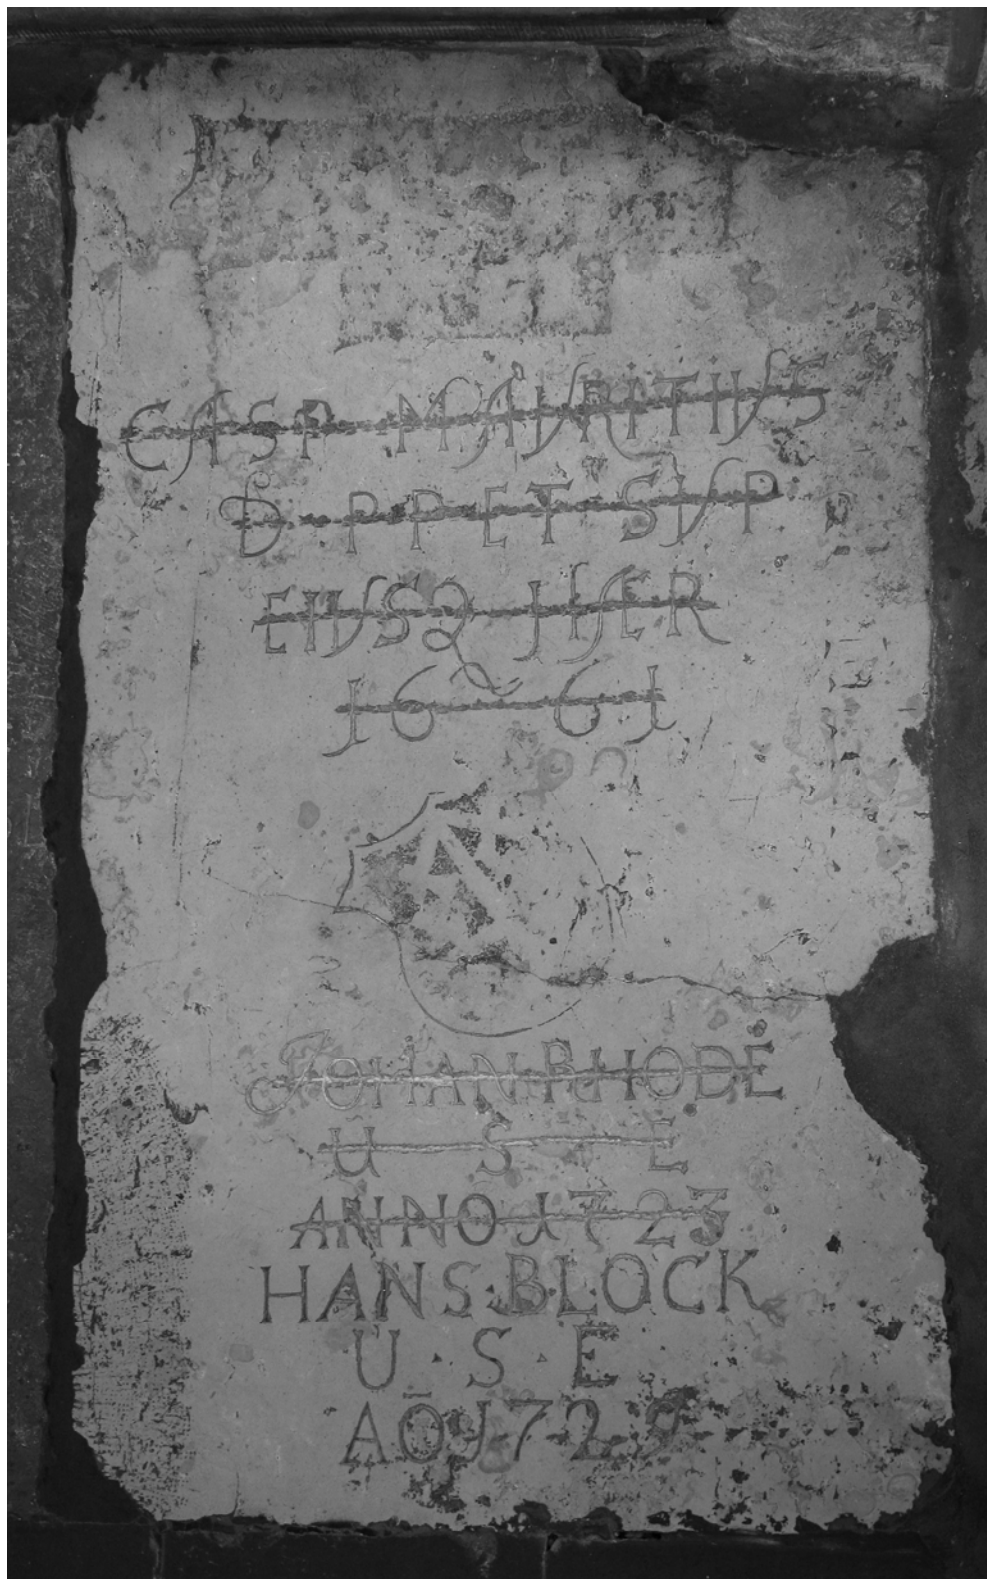 CASP MAURITIUS
D P P ET SUP
EIUSQ HÆR
1661
JOHAN RHODE
U S E
ANNO 1723
HANS·BLOCK
U · S · E
AŌ 1729